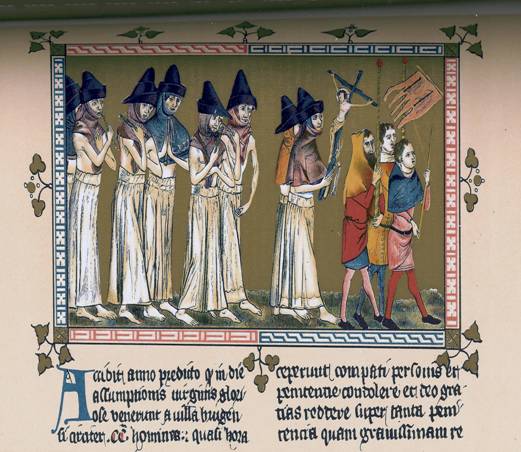 Accidit anno predicto q̄ in die
assumptionis uirginis glori
ose venerunt a villa brugen
si circiter .cc. homines: quasi hora
ceperunt compati personis et
penitencie condolere et deo gra
tias reddere super tanta peni
tencia quam grauissimam re